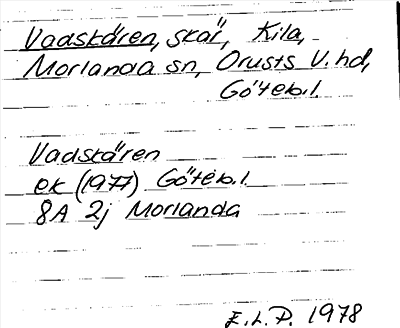 Vadskären, skär, Kila,
Morlanda sn, Orusts V. hd,
Göteb.l.
Vadskären
ek (1977) Göteb.l.
8A 2j Morlanda
E.L.P. 1978